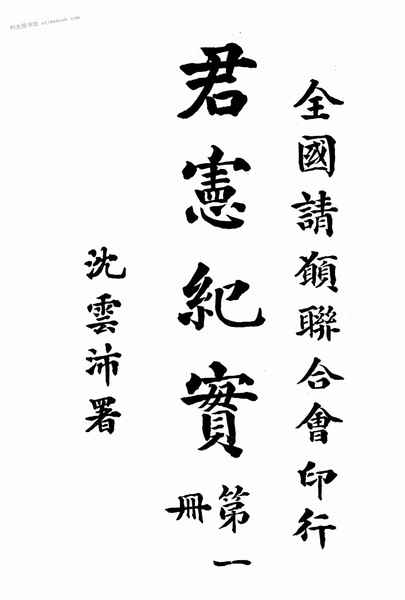 全國請願聯合會印行
君憲紀實 第一冊
沈雲沛署